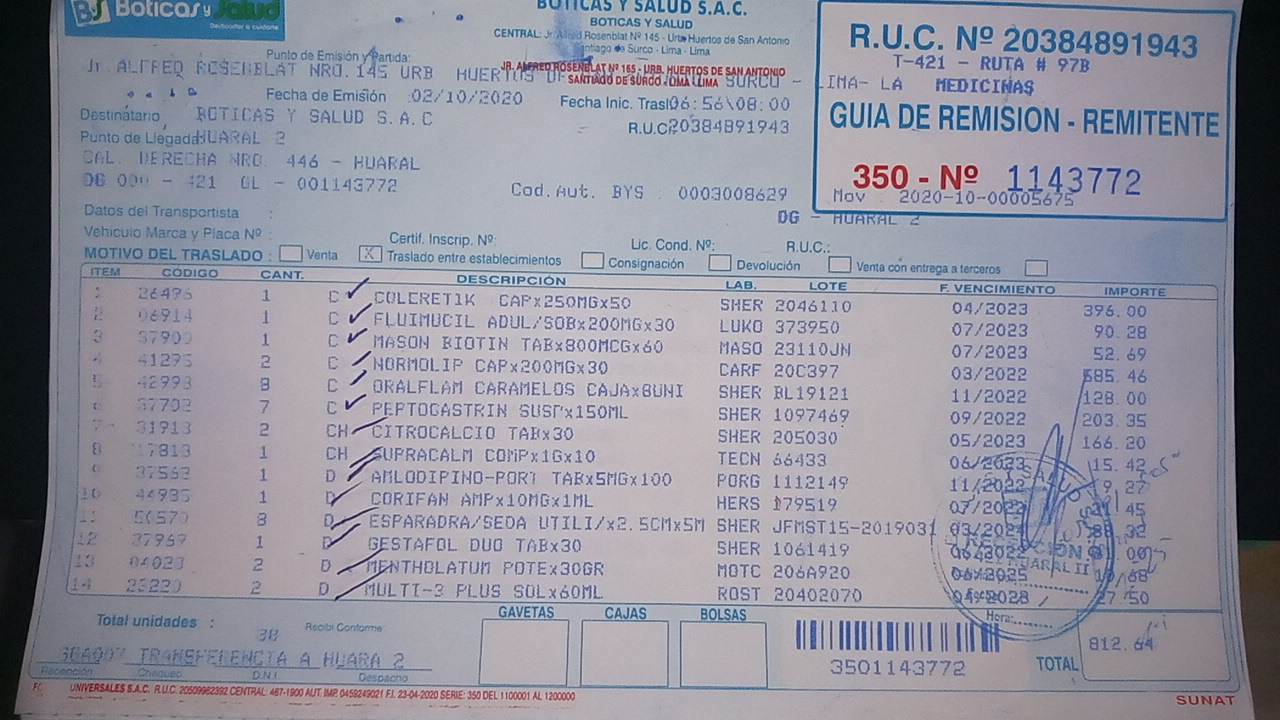 Boticas y Salud
BOTICAS Y SALUD S.A.C.
BOTICAS Y SALUD
CENTRAL: Jr. Alfred Rosenblat Nº 145 - Urb. Huertos de San Antonio
Santiago de Surco - Lima - Lima
JR. ALFRED ROSENBLAT Nº 165 - URB. HUERTOS DE SAN ANTONIO
SANTIAGO DE SURCO - LIMA - LIMA
R.U.C. Nº 20384891943
T-421 - RUTA # 97B
MEDICINAS
GUIA DE REMISION - REMITENTE
350 - Nº 1143772
Mov 2020-10-00005675
DG - HUARAL 2
Punto de Emisión y Partida:
Jr. ALFRED ROSENBLAT NRO. 145 URB HUERTOS SURCO - LIMA- LA
Fecha de Emisión :02/10/2020 Fecha Inic. Trasl 06:56\08:00
Destinatario BOTICAS Y SALUD S.A.C R.U.C. 20384891943
Punto de Llegada: HUARAL 2
CAL. DERECHA NRO. 446 - HUARAL
DG 000 - 421 GL - 001143772 Cod.Aut. BYS : 0003008629
Datos del Transportista :
Vehículo Marca y Placa Nº : Certif. Inscrip. Nº: Lic. Cond. Nº: R.U.C.:
MOTIVO DEL TRASLADO : Venta X Traslado entre establecimientos Consignación Devolución Venta con entrega a terceros
ITEM CÓDIGO CANT. DESCRIPCIÓN LAB. LOTE F. VENCIMIENTO IMPORTE
1 26496 1 C COLERETIK CAPx250MGx50 SHER 2046110 04/2023 396.00
2 06914 1 C FLUIMUCIL ADUL/SOBx200MGx30 LUKO 373950 07/2023 90.28
3 37900 1 C MASON BIOTIN TABx800MCGx60 MASO 23110JN 07/2023 52.69
4 41295 2 C NORMOLIP CAPx200MGx30 CARF 20C397 03/2022 585.46
5 42993 8 C ORALFLAM CARAMELOS CAJAx8UNI SHER BL19121 11/2022 128.00
6 37702 7 C PEPTOCASTRIN SUSPx150ML SHER 1097469 09/2022 203.35
7 31913 2 CH CITROCALCIO TABx30 SHER 205030 05/2023 166.20
8 17813 1 CH SUPRACALM COMPx1Gx10 TECN 66433 06/2023 15.42
9 37562 1 D AMLODIPINO-PORT TABx5MGx100 PORG 1112149 11/2022
10 44985 1 D CORIFAN AMPx10MGx1ML HERS 179519 07/2022
11 50570 8 D ESPARADRA/SEDA UTILI/x2.5CMx5M SHER JFMST15-2019031 03/2022
12 37969 1 D GESTAFOL DUO TABx30 SHER 1061419 06/2022
13 04023 2 D MENTHOLATUM POTEx30GR MOTC 206A920 06/2025
14 23220 2 D MULTI-3 PLUS SOLx60ML ROST 20402070
RECEPCIÓN
HUARAL II
Hora:
Total unidades : 38 Recibí Conforme GAVETAS CAJAS BOLSAS
TRANSFERENCIA A HUARA 2
Recepción Chequeo D.N.I. Despacho
3501143772
TOTAL 812.64
UNIVERSALES S.A.C. R.U.C. 20509962392 CENTRAL: 467-1900 AUT. IMP. 0459249021 F.I. 23-04-2020 SERIE: 350 DEL 1100001 AL 1200000
SUNAT